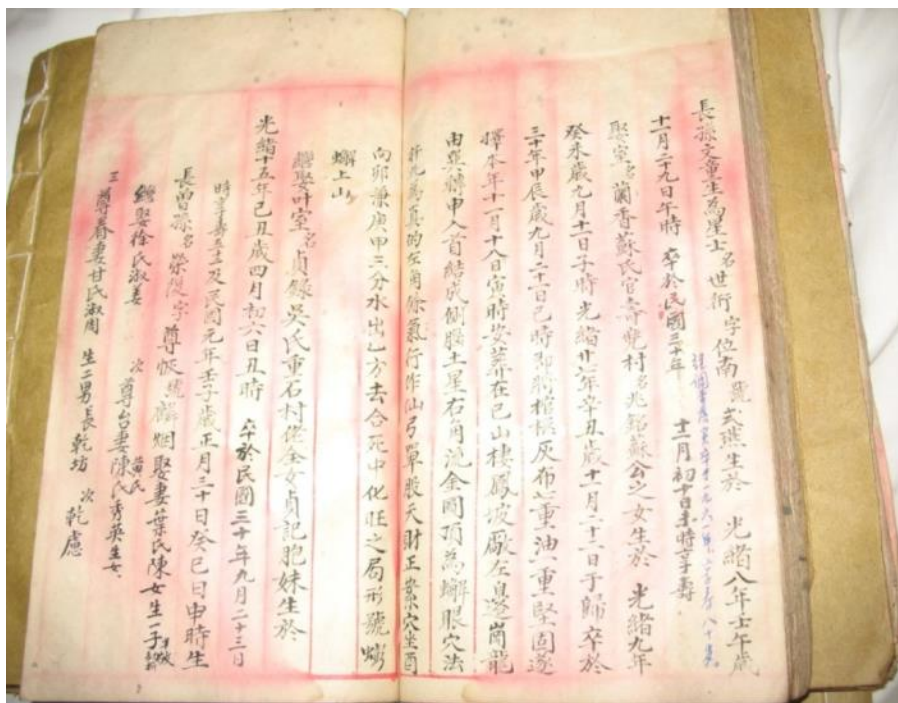 長孫文童生為星士名世術字位南號式燕生於 光緒八年壬午歲
十一月二十九日午時 卒於民國三十年 十二月初十日未時享壽
娶室名蘭香蘇氏官奇雙村名兆銘蘇公之女生於 光緒九年
癸未歲九月十二日子時 光緒廿七年辛丑歲十一月二十二日于歸 卒於
三十年甲辰歲九月二十一日巳時即將棺槨灰布七重油一重堅固遂
擇本年十一月十八日寅時安葬在巳山棲鳳坡厰左邊崗龍
由巽轉申入首結成側腦土星右角流金圓頂為蠏眼穴法
扦九為真的左角餘氣行作仙弓單股天財正案穴坐酉
向卯兼庚甲三分水出乙方去合死中化旺之局形號蟛
蠏上山
繼娶叶室名貞錄吳氏重石村佬全女貞記胞妹生於
光緒十五年己丑歲四月初六日丑時 卒於民國三十年九月二十三日
時享壽五十三及民國元年壬子歲正月三十日癸巳日申時生
長曲孫名榮俊字尊悵號麟烟娶妻葉氏陳女生一子
繼娶徐氏淑善 次尊台妻陳氏秀英生女
黃氏
三尊眷妻甘氏淑周 生二男長乾坊 次乾慮